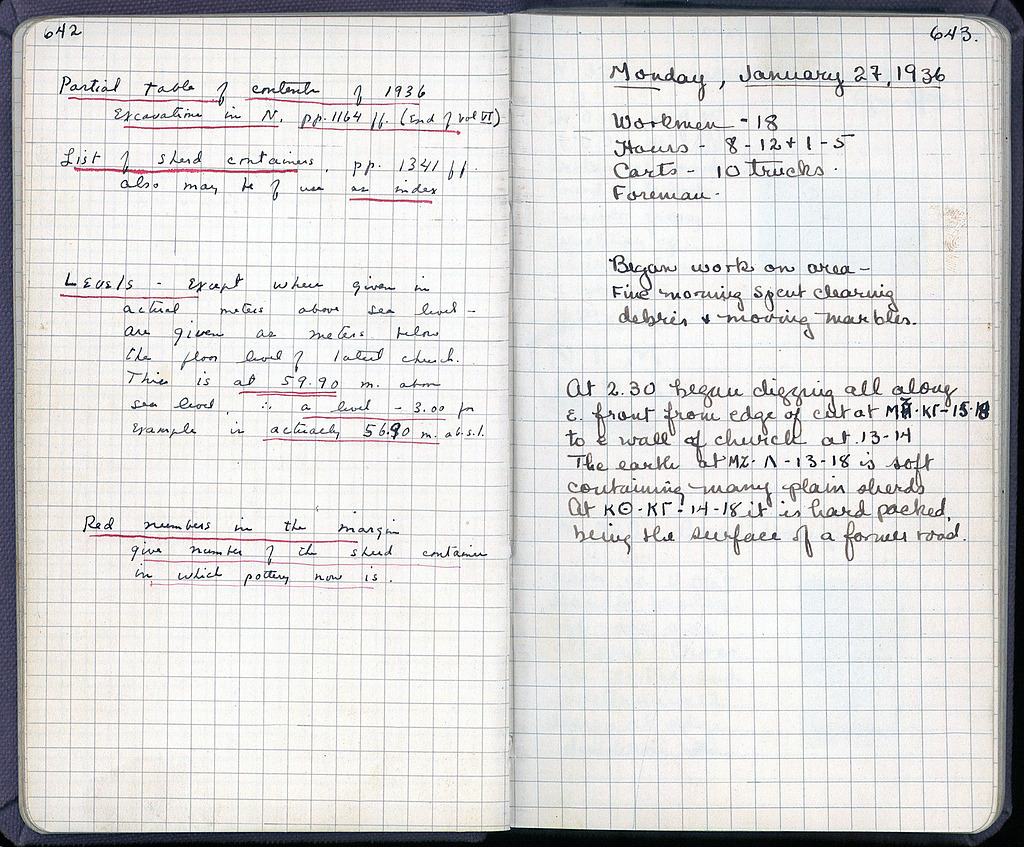 642
Partial table of contents of 1936
Excavations in N. pp. 1164 ff. (End of vol VI)
List of sherd containers, pp. 1341 ff.
also may be of use as index
Levels - Except where given in
actual meters above sea level -
are given as meters below
the floor level of latest church.
This is at 59.90 m. above
sea level, ∴ a level - 3.00 for
example is actually 56.90 m. ab.s.l.
Red numbers in the margin
give number of the sherd container
in which pottery now is.
643.
Monday, January 27, 1936
Workmen - 18
Hours - 8-12 + 1-5
Carts - 10 trucks.
Foreman -
Began work on area -
Fine morning spent clearing
debris & moving marbles.
At 2.30 began digging all along
E. front from edge of cut at ΚΓ-15-18
to E wall of church at 13-14
The earth at ΜΖ-Λ-13-18 is soft
containing many plain sherds
At ΚΘ-ΚΓ-14-18 it is hard packed,
being the surface of a former road.